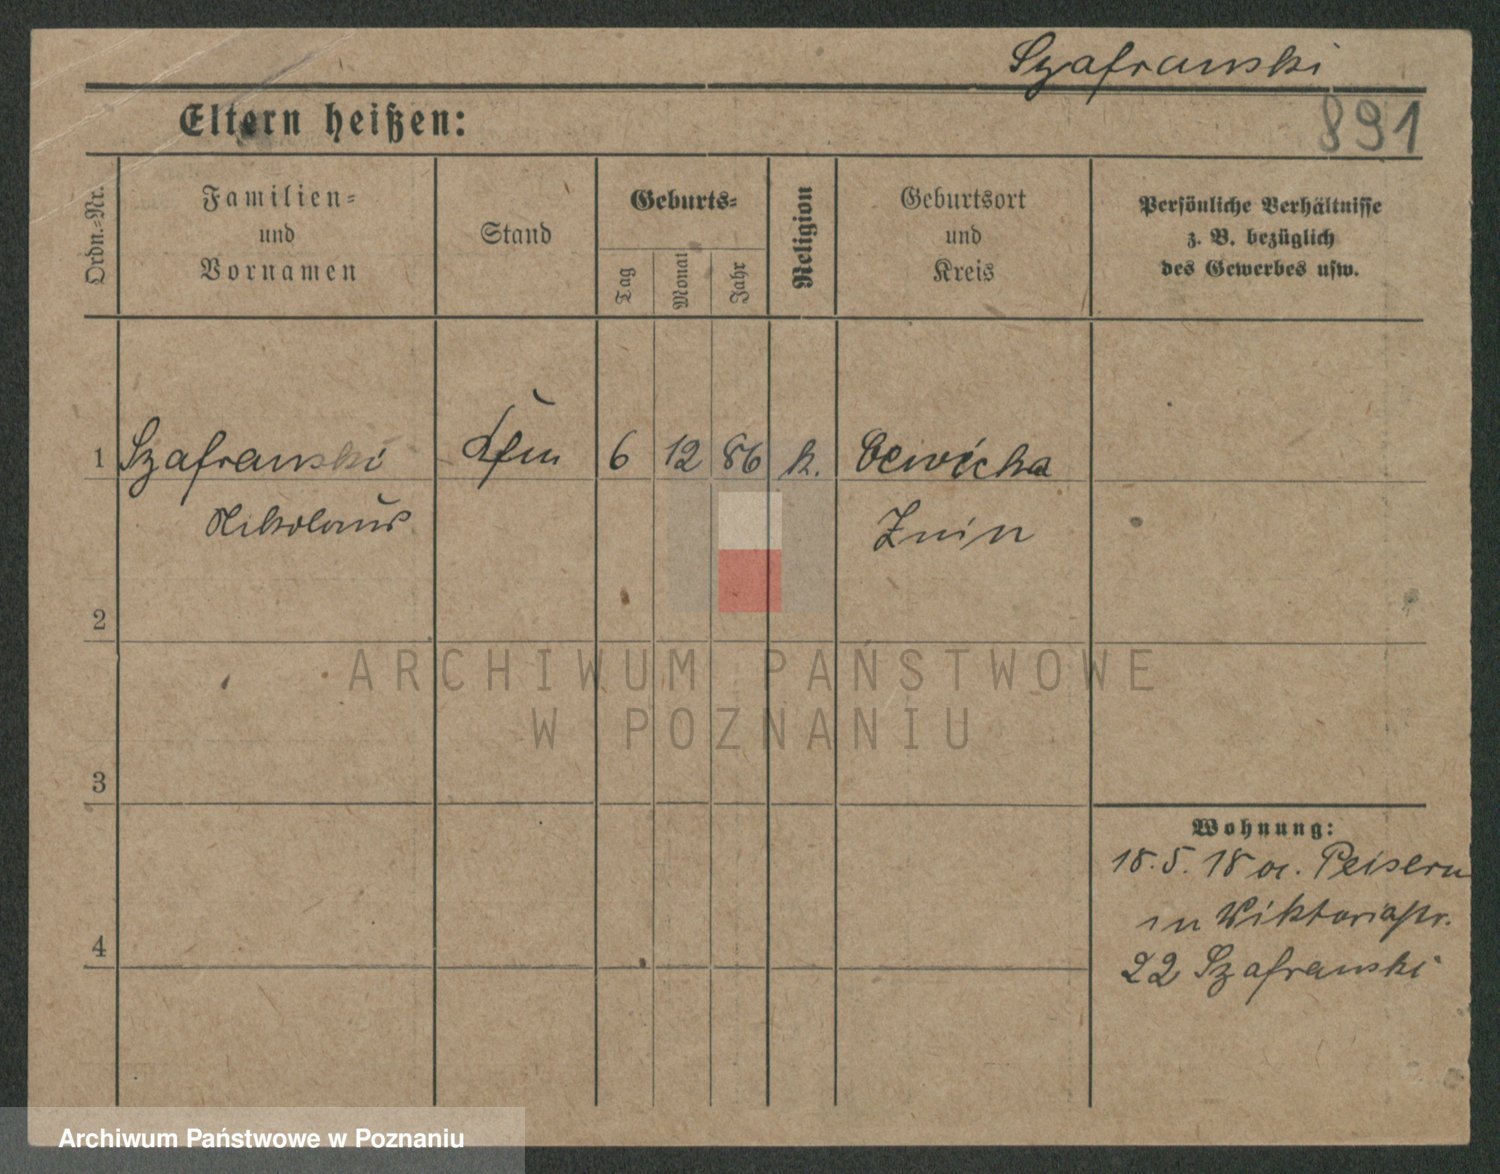 Szafranski
Eltern heißen:
891
Ordn.-Nr.
Familien-
und
Vornamen
Stand
Geburts-
Tag
Monat
Jahr
Religion
Geburtsort
und
Kreis
Persönliche Verhältnisse
z. B. bezüglich
des Gewerbes usw.
1 Szafranski 6 12 86 k.
Nikolaus Znin
2
3
4
Wohnung:
18.5.18 a. Peisern
in Viktoriastr.
22 Szafranski
ARCHIWUM PAŃSTWOWE
W POZNANIU
Archiwum Państwowe w Poznaniu